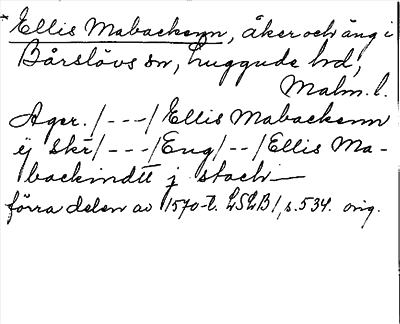 * Ellis Mabackenn, åker och äng i
Bårslövs sn, Luggude hd,
Malm. l.
Ager. /---/ Ellis Mabackenn
ij skr/---/ Eng/--/ Ellis Ma-
backindtt j stach—
förra delen av 1570-t. LSLB 1, s. 534. orig.